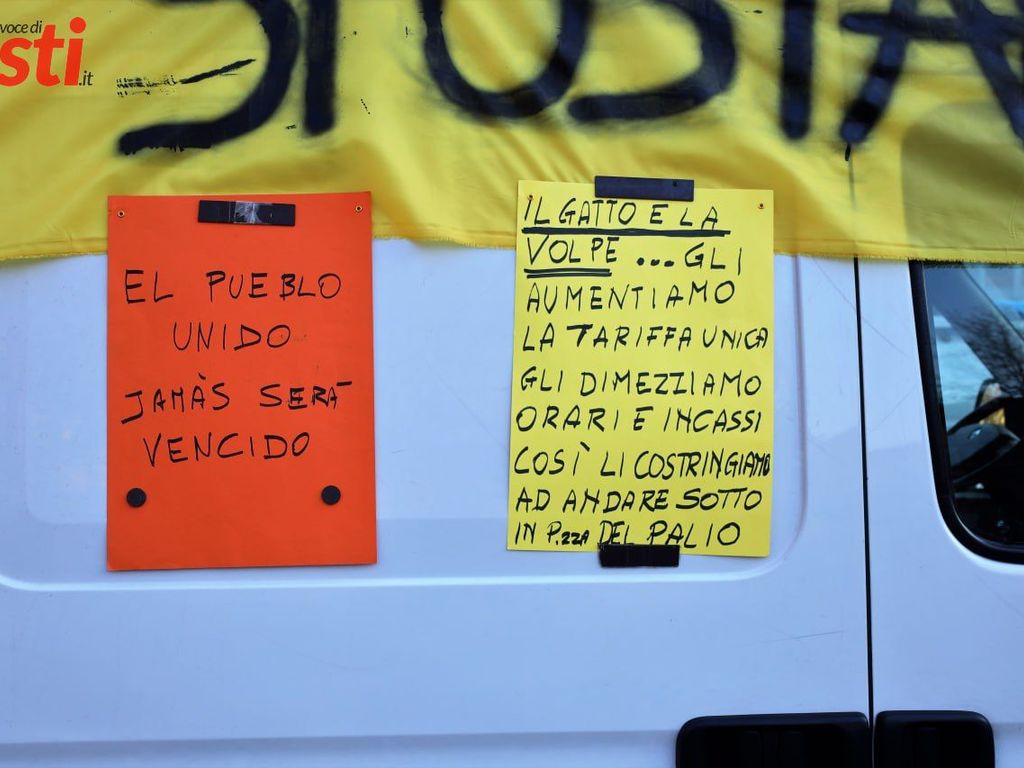 voce di
sti.it
EL PUEBLO
UNIDO
JAMÀS SERÀ
VENCIDO
IL GATTO E LA
VOLPE ... GLI
AUMENTIAMO
LA TARIFFA UNICA
GLI DIMEZZIAMO
ORARI E INCASSI
COSÌ LI COSTRINGIAMO
AD ANDARE SOTTO
IN P.zza DEL PALIO